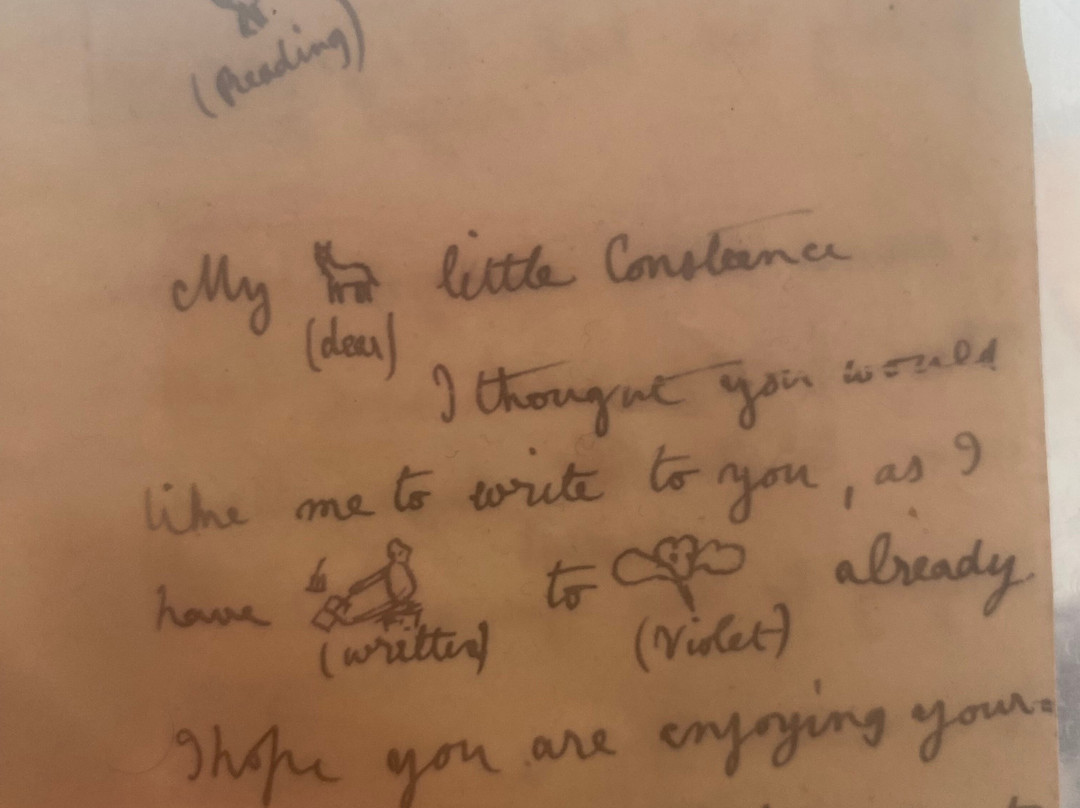 (Reading)
My little Constance
(dear)
I thought you would
like me to write to you, as I
have to already
(written) (Violet)
I hope you are enjoying your=